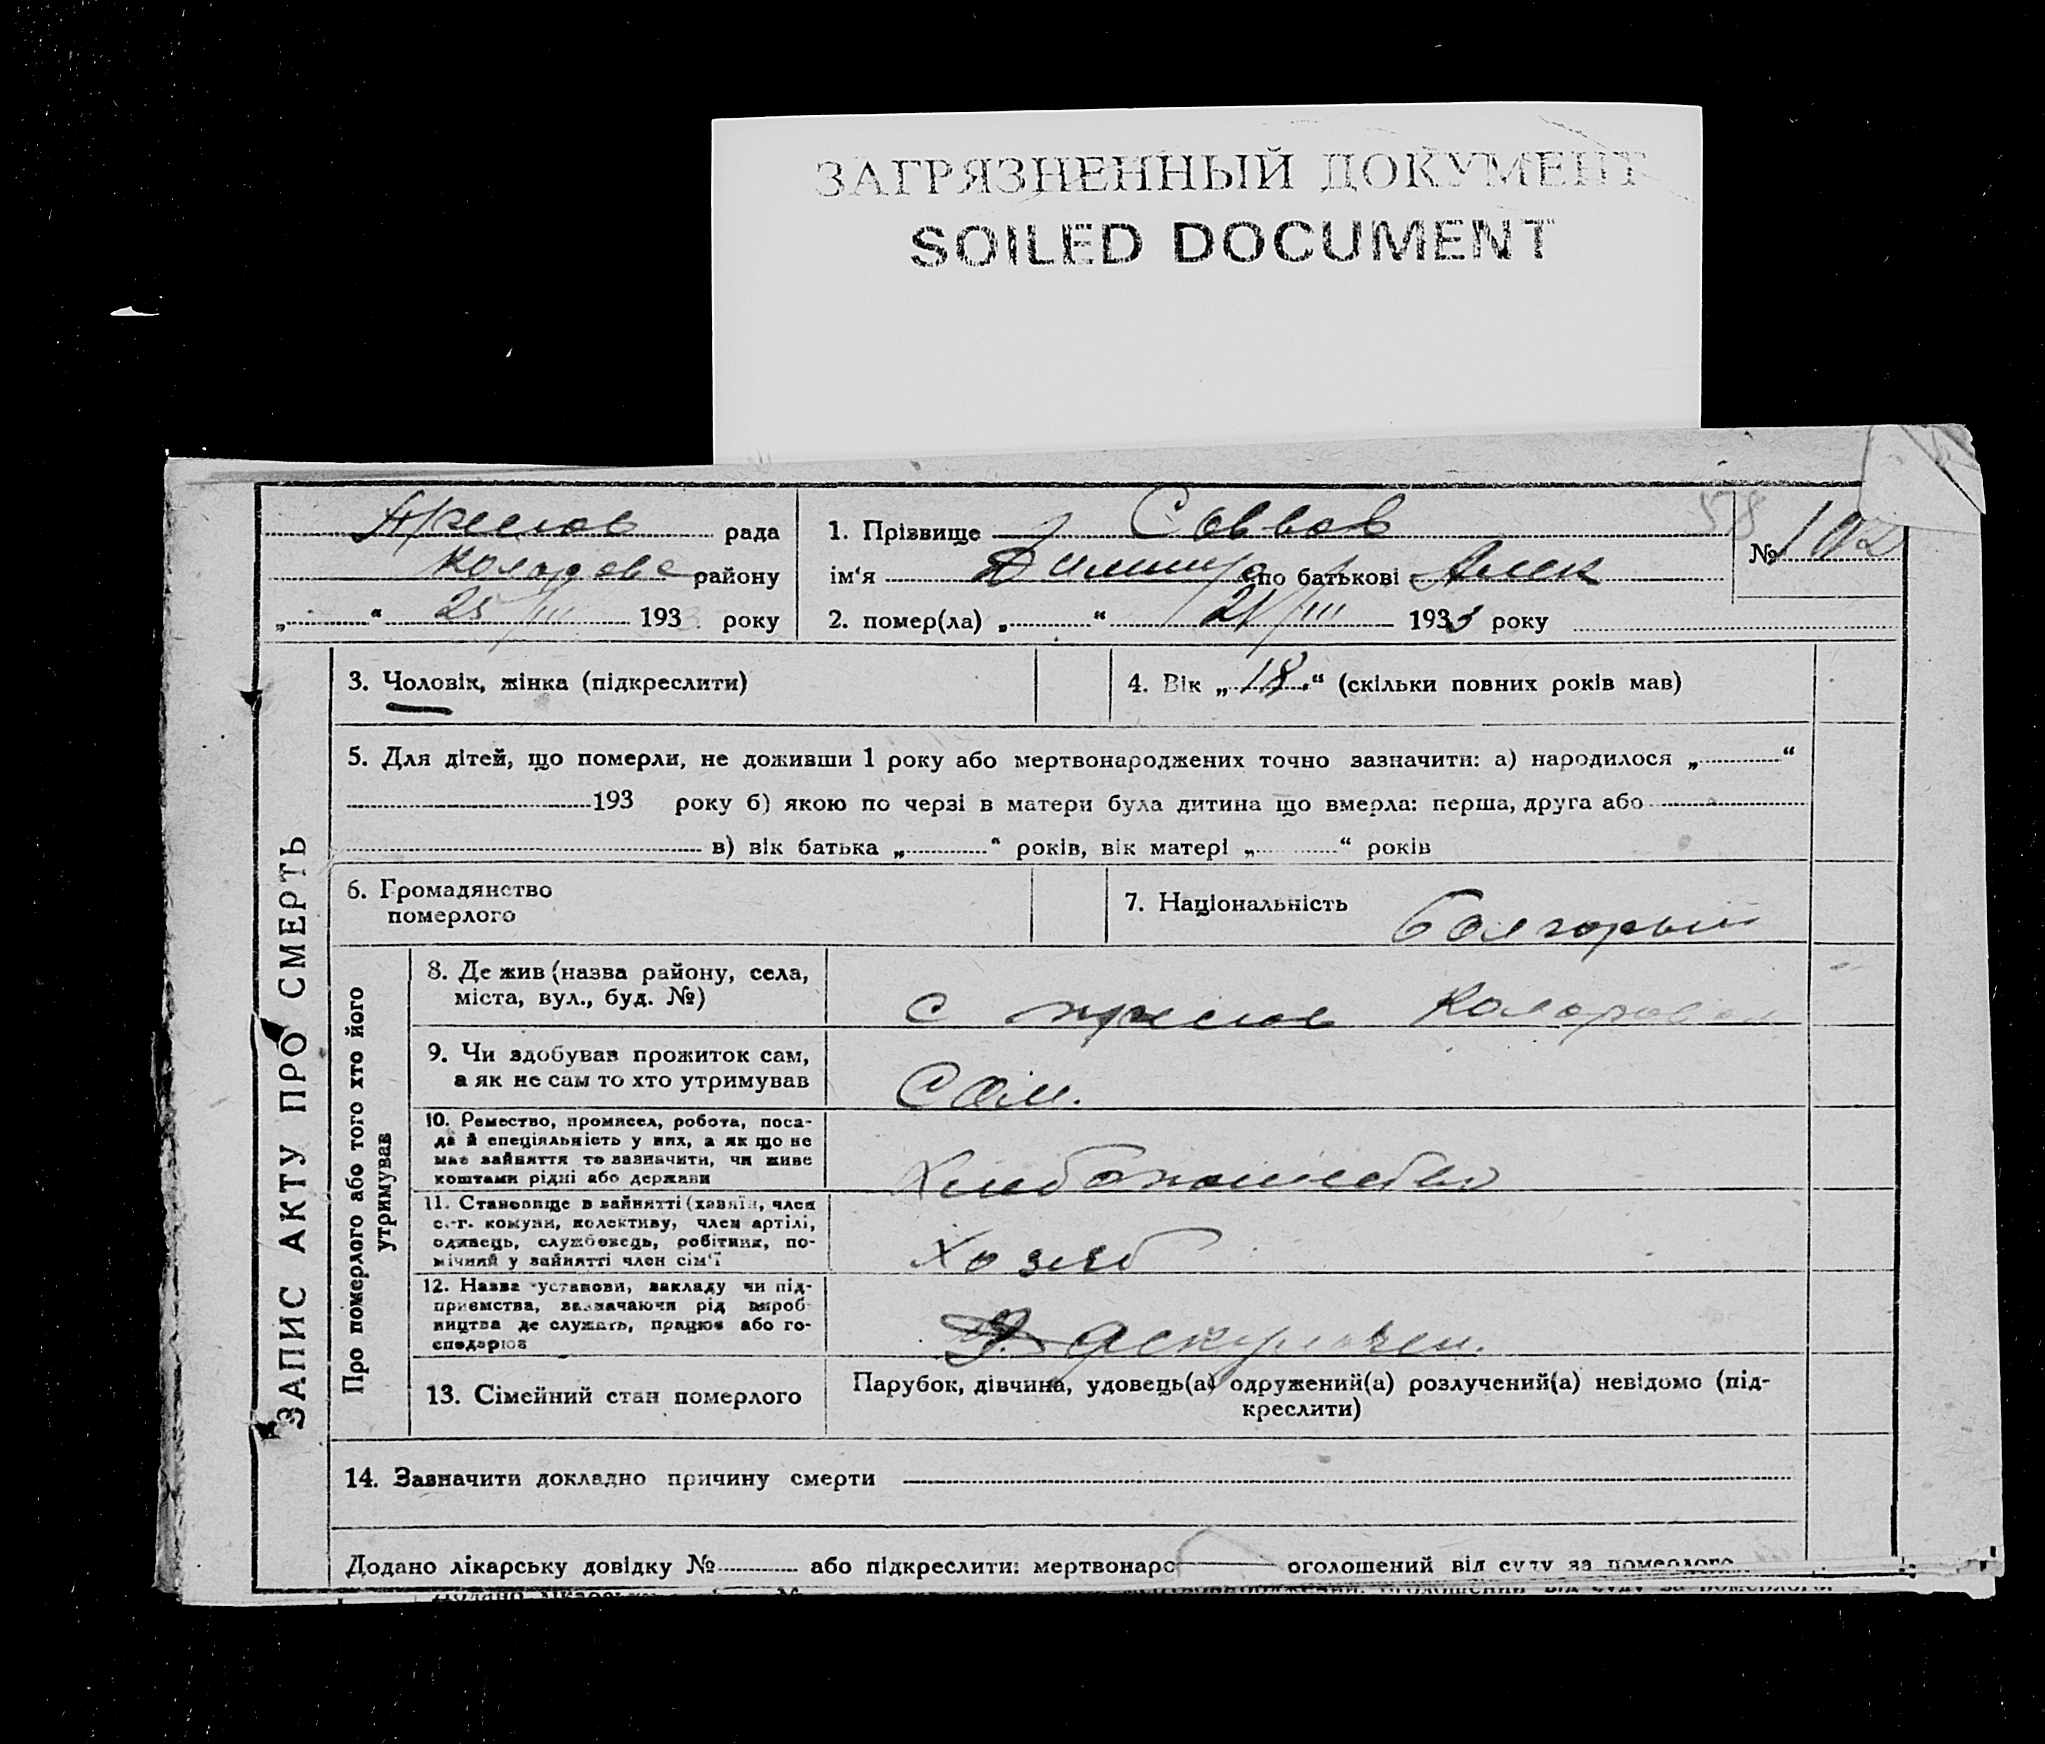 ЗАГРЯЗНЕННЫЙ ДОКУМЕНТ
SOILED DOCUMENT
58
рада
району
„ “ 25/III 193 року
1. Прізвище Саввов
№ 102
ім‘я по батькові Алек
2. помер(ла) „ “ 21/III 1933 року
ЗАПИС АКТУ ПРО СМЕРТЬ
3. Чоловік, жінка (підкреслити)
4. Вік „18“ (скільки повних років мав)
5. Для дітей, що померли, не доживши 1 року або мертвонароджених точно зазначити: а) народилося „ “
193 року б) якою по черзі в матери була дитина що вмерла: перша, друга або
в) вік батька „ “ років, вік матері „ “ років
6. Громадянство
померлого
7. Національність
Про померлого або того хто його
утримував
8. Де жив (назва району, села,
міста, вул., буд. №)
с
9. Чи здобував прожиток сам,
а як не сам то хто утримував
Сам.
10. Ремество, промисел, робота, поса-
да й спеціяльність у них, а як що не
має зайняття то зазначити, чи живе
коштами рідні або держави
11. Становище в зайнятті (хазяїн, член
с.-г. комуни, колективу, член артілі,
одинець, службовець, робітник, по-
мічний у зайнятті член сім‘ї
12. Назва установи, закладу чи під-
приємства, зазначаючи рід вироб-
ництва де служить, працює або го-
сподарює
13. Сімейний стан померлого
Парубок, дівчина, удовець(а) одружений(а) розлучений(а) невідомо (під-
креслити)
14. Зазначити докладно причину смерти
Додано лікарську довідку № або підкреслити: мертвонаро оголошений від суду за померлого